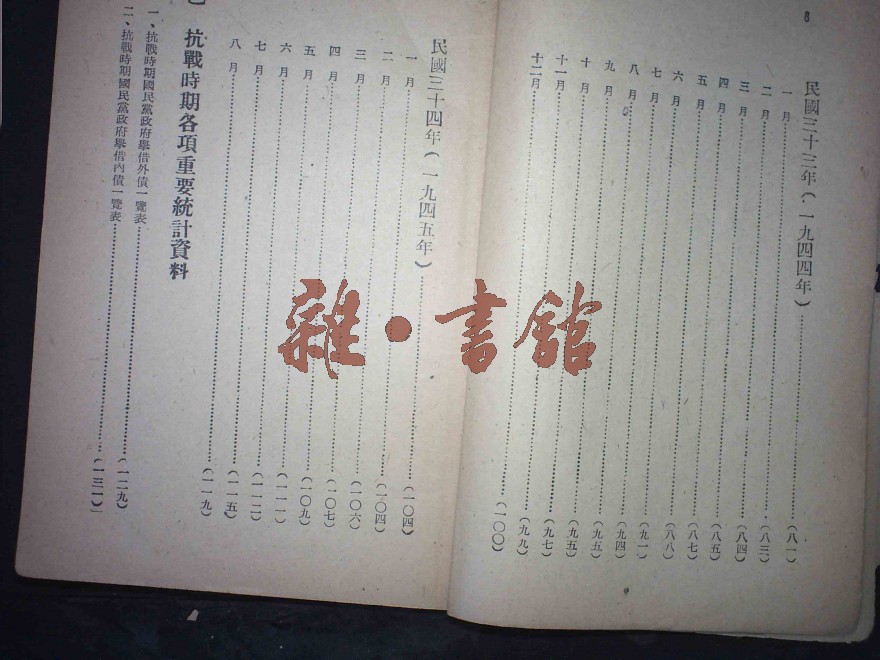 8
民國三十三年(一九四四年)……(八一)
一月……(八三)
二月……(八四)
三月……(八五)
四月……(八七)
五月……(八八)
六月……(九一)
七月……(九四)
八月……(九五)
九月……(九五)
十月……(九七)
十一月……(九九)
十二月……(一〇〇)
民國三十四年(一九四五年)……(一〇四)
一月……(一〇四)
二月……(一〇六)
三月……(一〇七)
四月……(一〇九)
五月……(一一一)
六月……(一一二)
七月……(一一五)
八月……(一一九)
抗戰時期各項重要統計資料
一、抗戰時期國民黨政府舉借外債一覽表……(一二九)
二、抗戰時期國民黨政府舉借內債一覽表……(一三一)
雜·書館